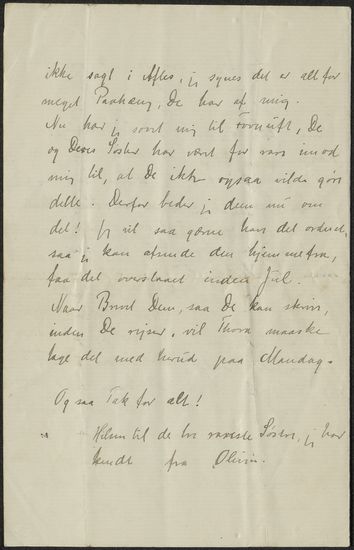 ikke sagt i Aftes, jeg synes det er alt for
meget Paahæng, De har af mig.
Nu har jeg sovet mig til Fornuft, De
og Deres Søster har vært for rare imod
mig til, at De ikke ogsaa vilde gøre
dette. Derfor beder jeg dem nu om
det! Jeg vil saa gærne have det ordnet,
saa jeg kan afsende den hjemmefra,
faa det overstaaet inden Jul.
Naar Brevet Dem, saa De kan skrive,
inden De rejser, vil Thora maaske
tage det med herud paa Mandag.
Og saa Tak for alt!
Hilsen til de to rareste Søstre, jeg har
kendt fra Olivia.